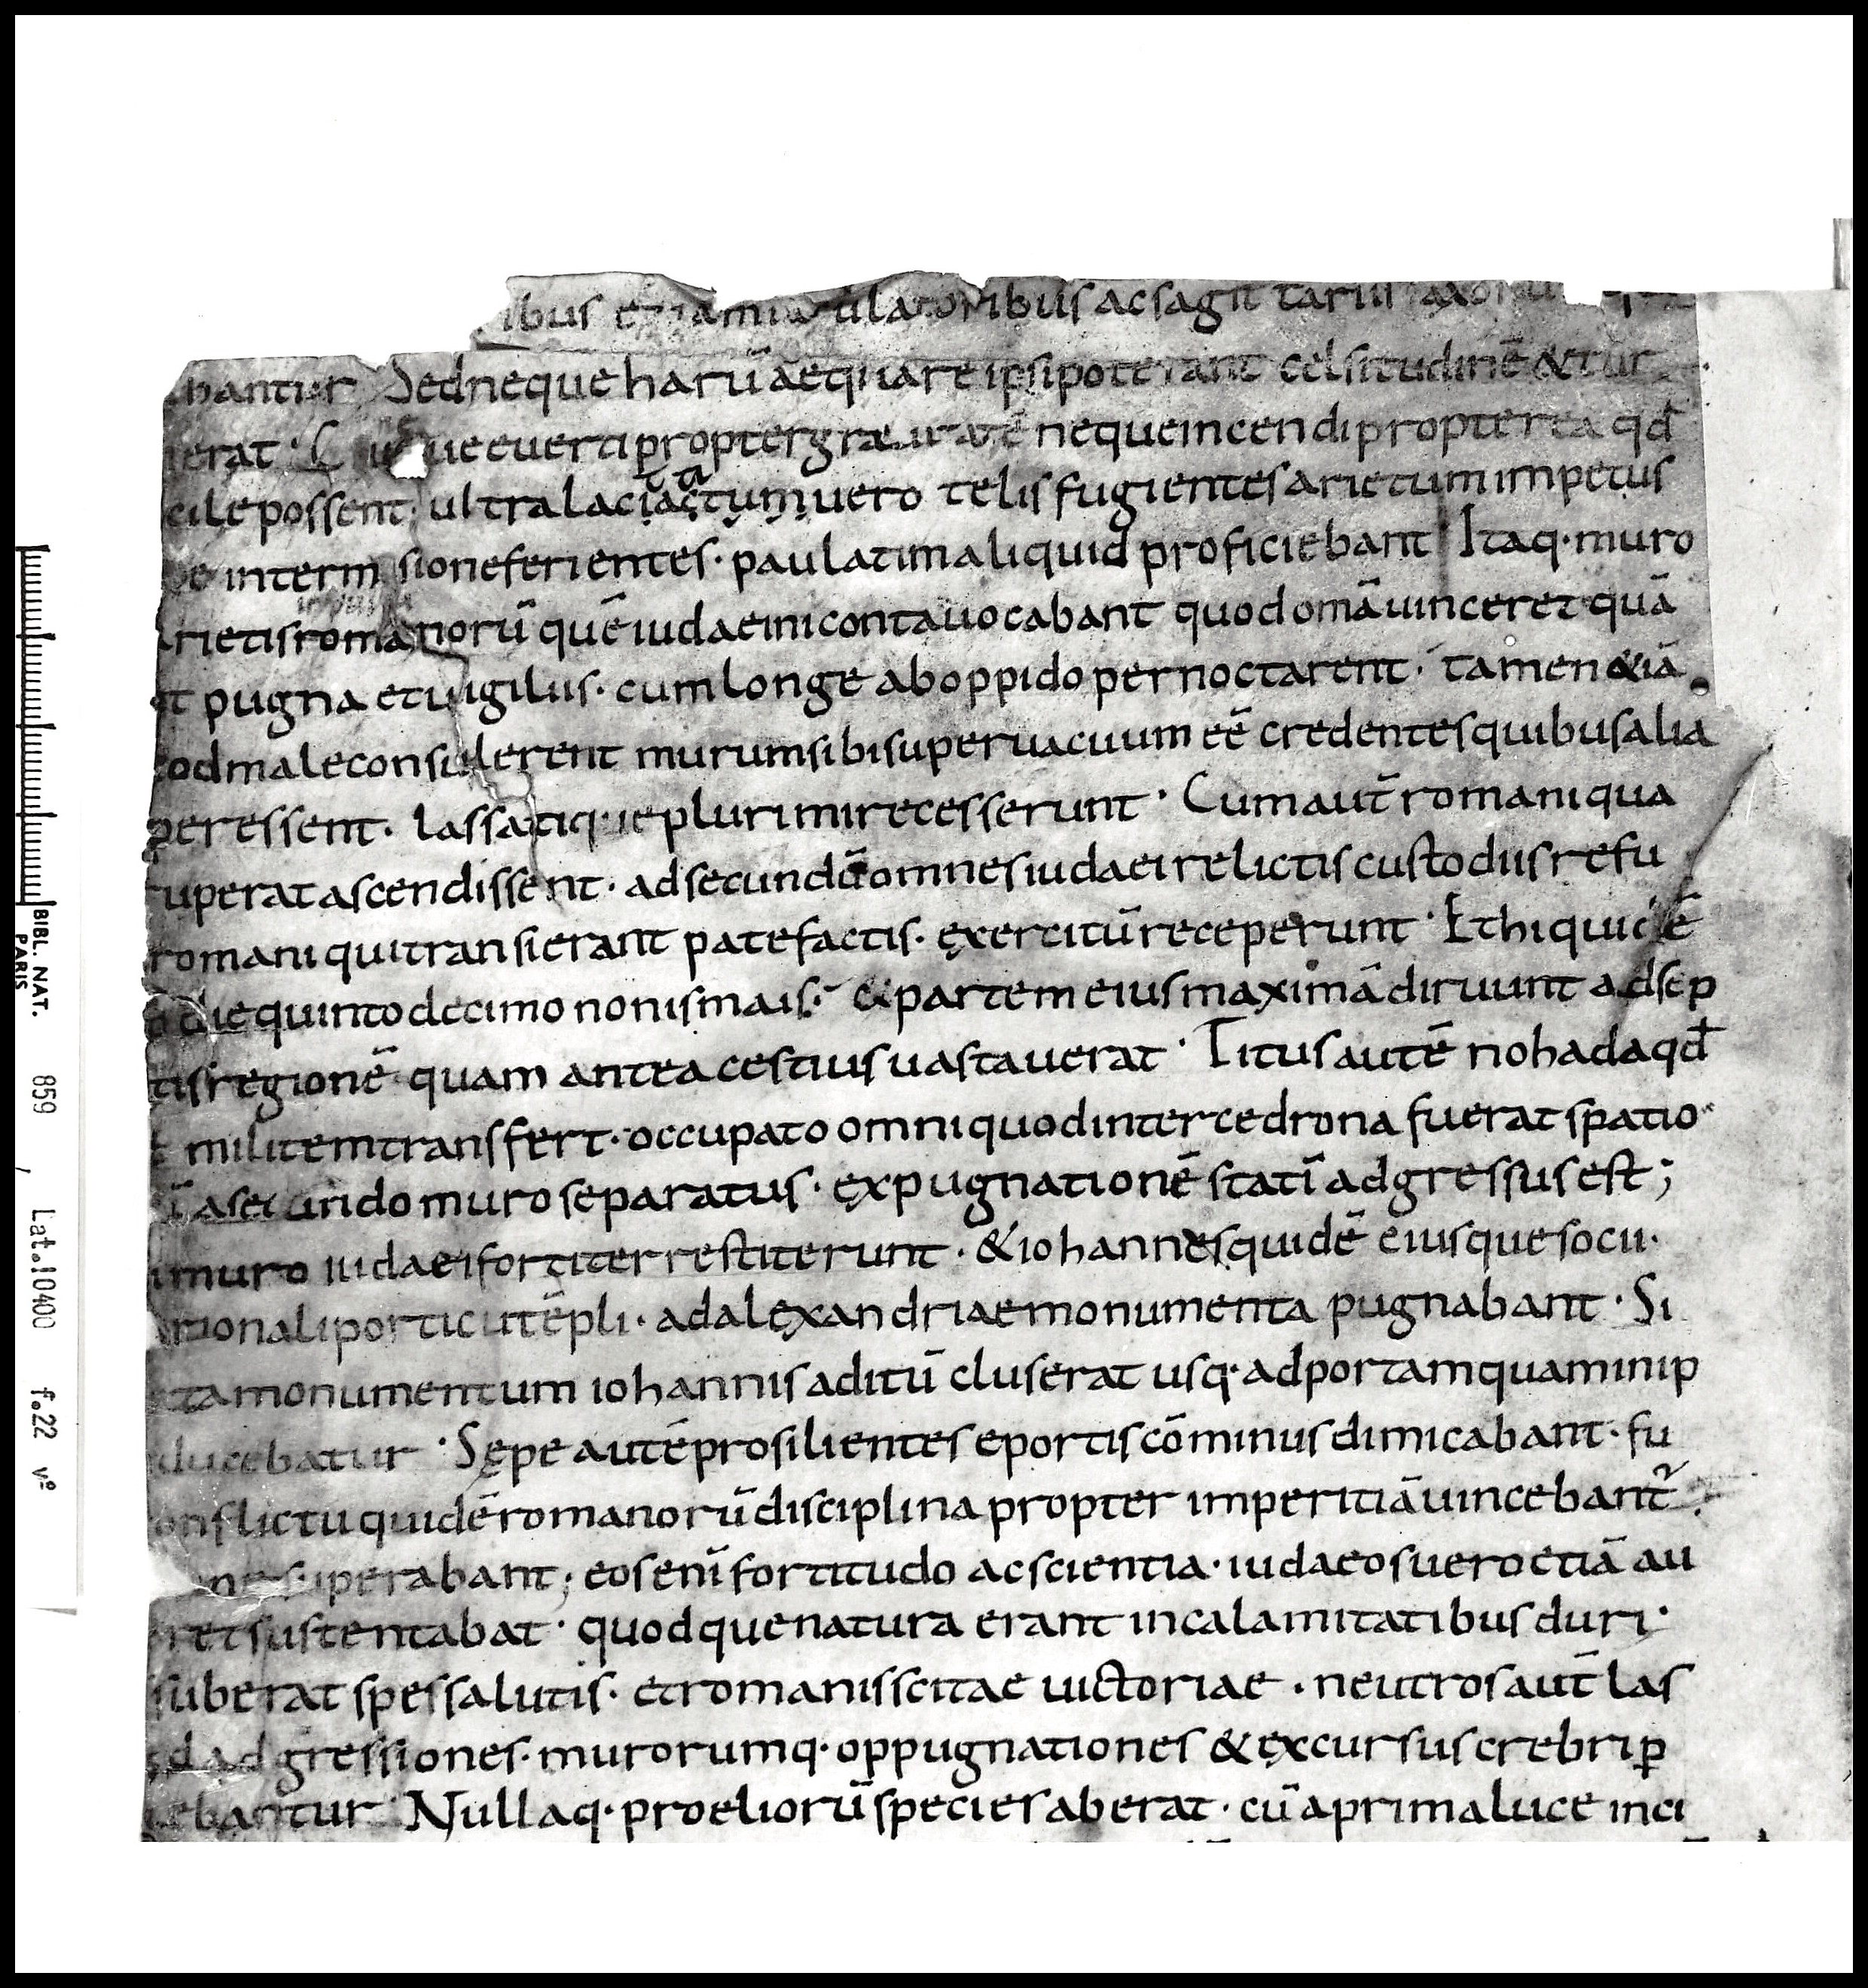 ibus etiam iaculatoribus ac sagittariis
bantur Sed neque harū aequare ipsi poterant celsitudinē & tur
erat · ue euerti propter grauitatē neque incendi propterea qd̄
cile possent · ultra lac iactum uero telis fugientes arietum impetus
interm sione ferientes · paulatim aliquid proficiebant · Itaq· muro
rietis romanorū quē iudaei niconta uocabant quod omā uinceret quā
t pugna et uigiliis · cum longe ab oppido pernoctarent · tamen &iā
od male consulerent murum sibi superuacuum eē credentes quibus alia
peressent · lassatique plurimi recesserunt · Cum aut̄ romani qua
uperat ascendissent · ad secundū omnes iudaei relictis custodiis refu
romani qui transierant patefactis · exercitū receperunt · Et hi quidē
die quinto decimo nonis mais · & partem eius maximā diruunt ad sep
tis regionē quam antea cestius uastauerat · Titus autē nohad aqd̄
militem transfert · occupato omni quod inter cedrona fuerat spatio
ī a secundo muro separatus · expugnationē statī adgressus est ;
muro iudaei fortiter restiterunt · & iohannes quidē eiusque socii ·
rionali porticu tēpli · ad alexandriae monumenta pugnabant · Si
ta monumentum iohannis aditū cluserat usq· ad portam quam in ip
ducebatur · Sępe autē prosilientes e portis cōminus dimicabant · fu
onflictu quidē romanorū disciplina propter imperitiā uincebant᷑
ne superabant ; eos enī fortitudo ac scientia · iudaeos uero etiā au
ret sustentabat · quodque natura erant in calamitatibus duri ·
suberat spes salutis · et romanis scitae uictoriae · neutros aut̄ las
d adgressiones · murorumq· oppugnationes & excursus crebri ꝑ
ebantur Nullaq· proeliorū species aberat · cū a prima luce inci
BIBL. NAT. PARIS
859 , Lat.10400 f.22 vº